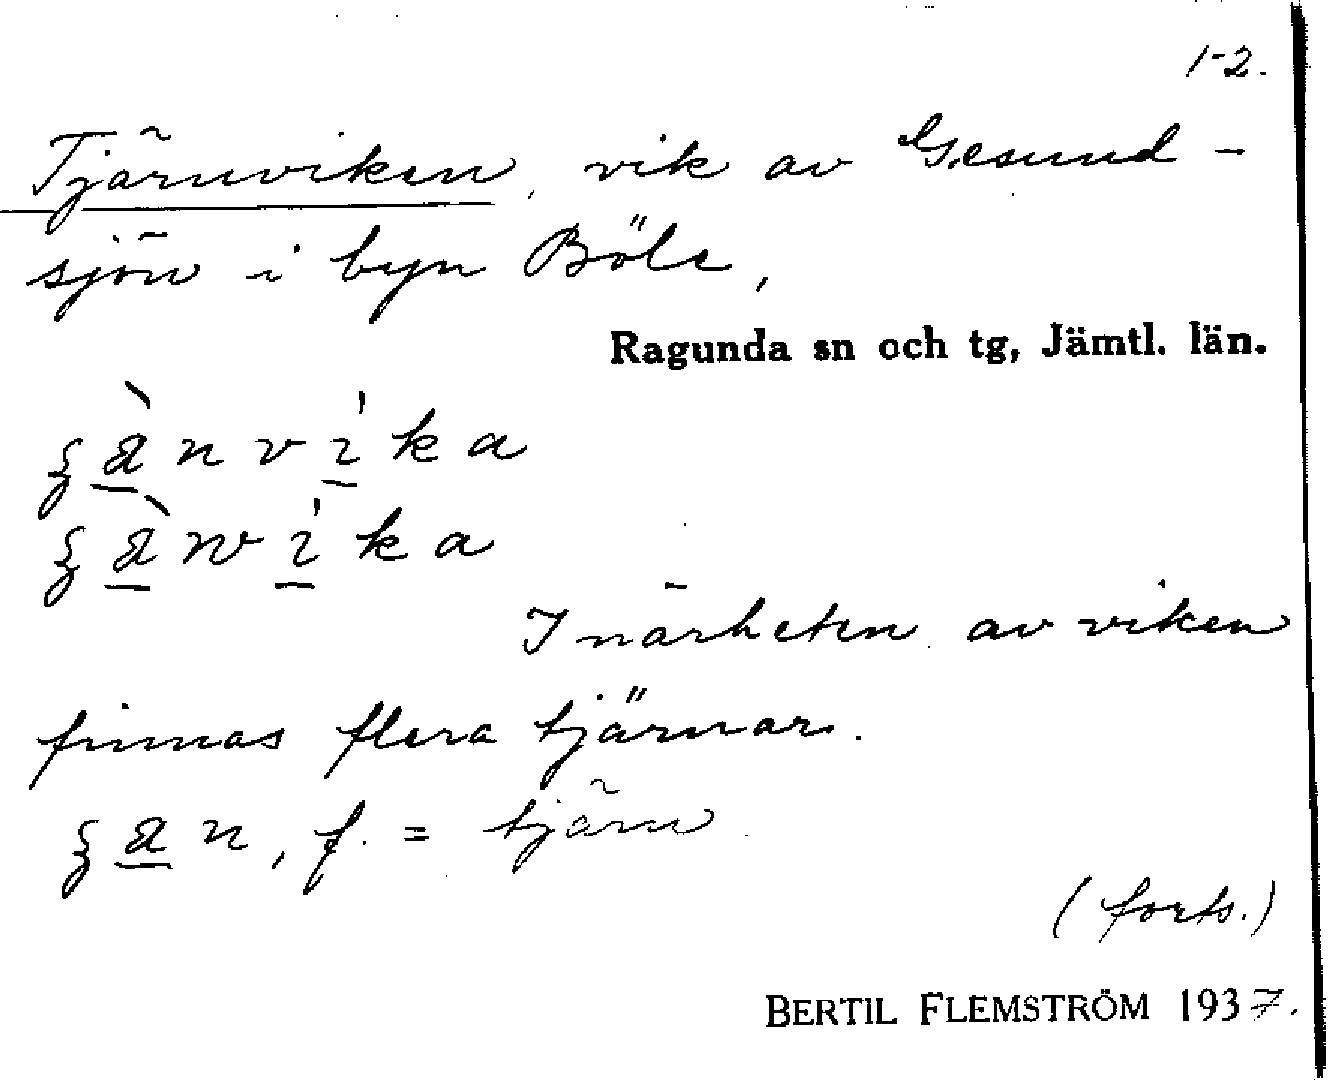 1-2.
Tjärnviken, vik av Gesund-
sjön i byn Böle,
Ragunda sn och tg, Jämtl. län.
I närheten av viken
finnas flera tjärnar.
, f. = tjärn
(forts.)
BERTIL FLEMSTRÖM 1937.